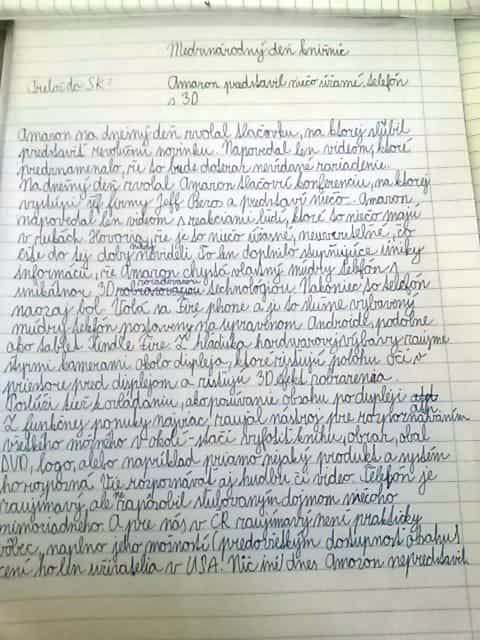 Medzinárodný deň knižníc
Prelož do SK: Amazon predstavil niečo úžasné, telefón
s 3D
Amazon na dnešný deň zvolal tlačovku, na ktorej sľúbil
predstaviť revolučnú novinku. Napovedal len videom, ktoré
predznamenalo, že to bude doteraz nevídané zariadenie.
Na dnešný deň zvolal Amazon tlačovú konferenciu, na ktorej
vystúpi šéf firmy Jeff Bezos a predstaví niečo. Amazon,
napovedal len videom s reakciami ľudí, ktoré to niečo majú
v rukách. Hovoria, že je to niečo úžasné, neuveriteľné, čo
ešte do tej doby nikdy nevideli. To len doplnilo skymújúce úniky
informácií, že Amazon chystá vlastný múdry telefón s
unikátnou 3D zobrazovacou technológiou. Nakoniec to telefón
naozaj bol. Volá sa Fire phone a je to slušne vybavený
múdry telefón postavený na upravenom Androide, podobne
ako tablet Kindle Fire. Z hľadiska hardwarovej výbavy zaujme
štyrmi kamerami okolo displeja, ktoré zisťujú polohu očí v
priestore pred displejom a zisťujú 3D efekt zobrazenia.
Poslúži tiež k ovládaniu, ako posúvanie obsahu po displeji atď.
Z funkčnej ponuky najviac zaujal nástroj pre rozpoznávaním
všetkého možného v okolí - stačí vyfotiť knihu, obraz, obal
DVD, logo, alebo napríklad priamo nejaký produkt a systém
ho rozpozná. Vie rozpoznávať aj hudbu či video. Telefón je
zaujímavý, ale nezapôsobil sľubovaným dojmom niečoho
mimoriadneho. A pre nás v ČR zaujímavý není prakticky
vôbec, naplno jeho možností (predovšetkým dostupnosť obsahu)
cení ho len užívatelia v USA. Nič iné dnes Amazon nepredstavil.